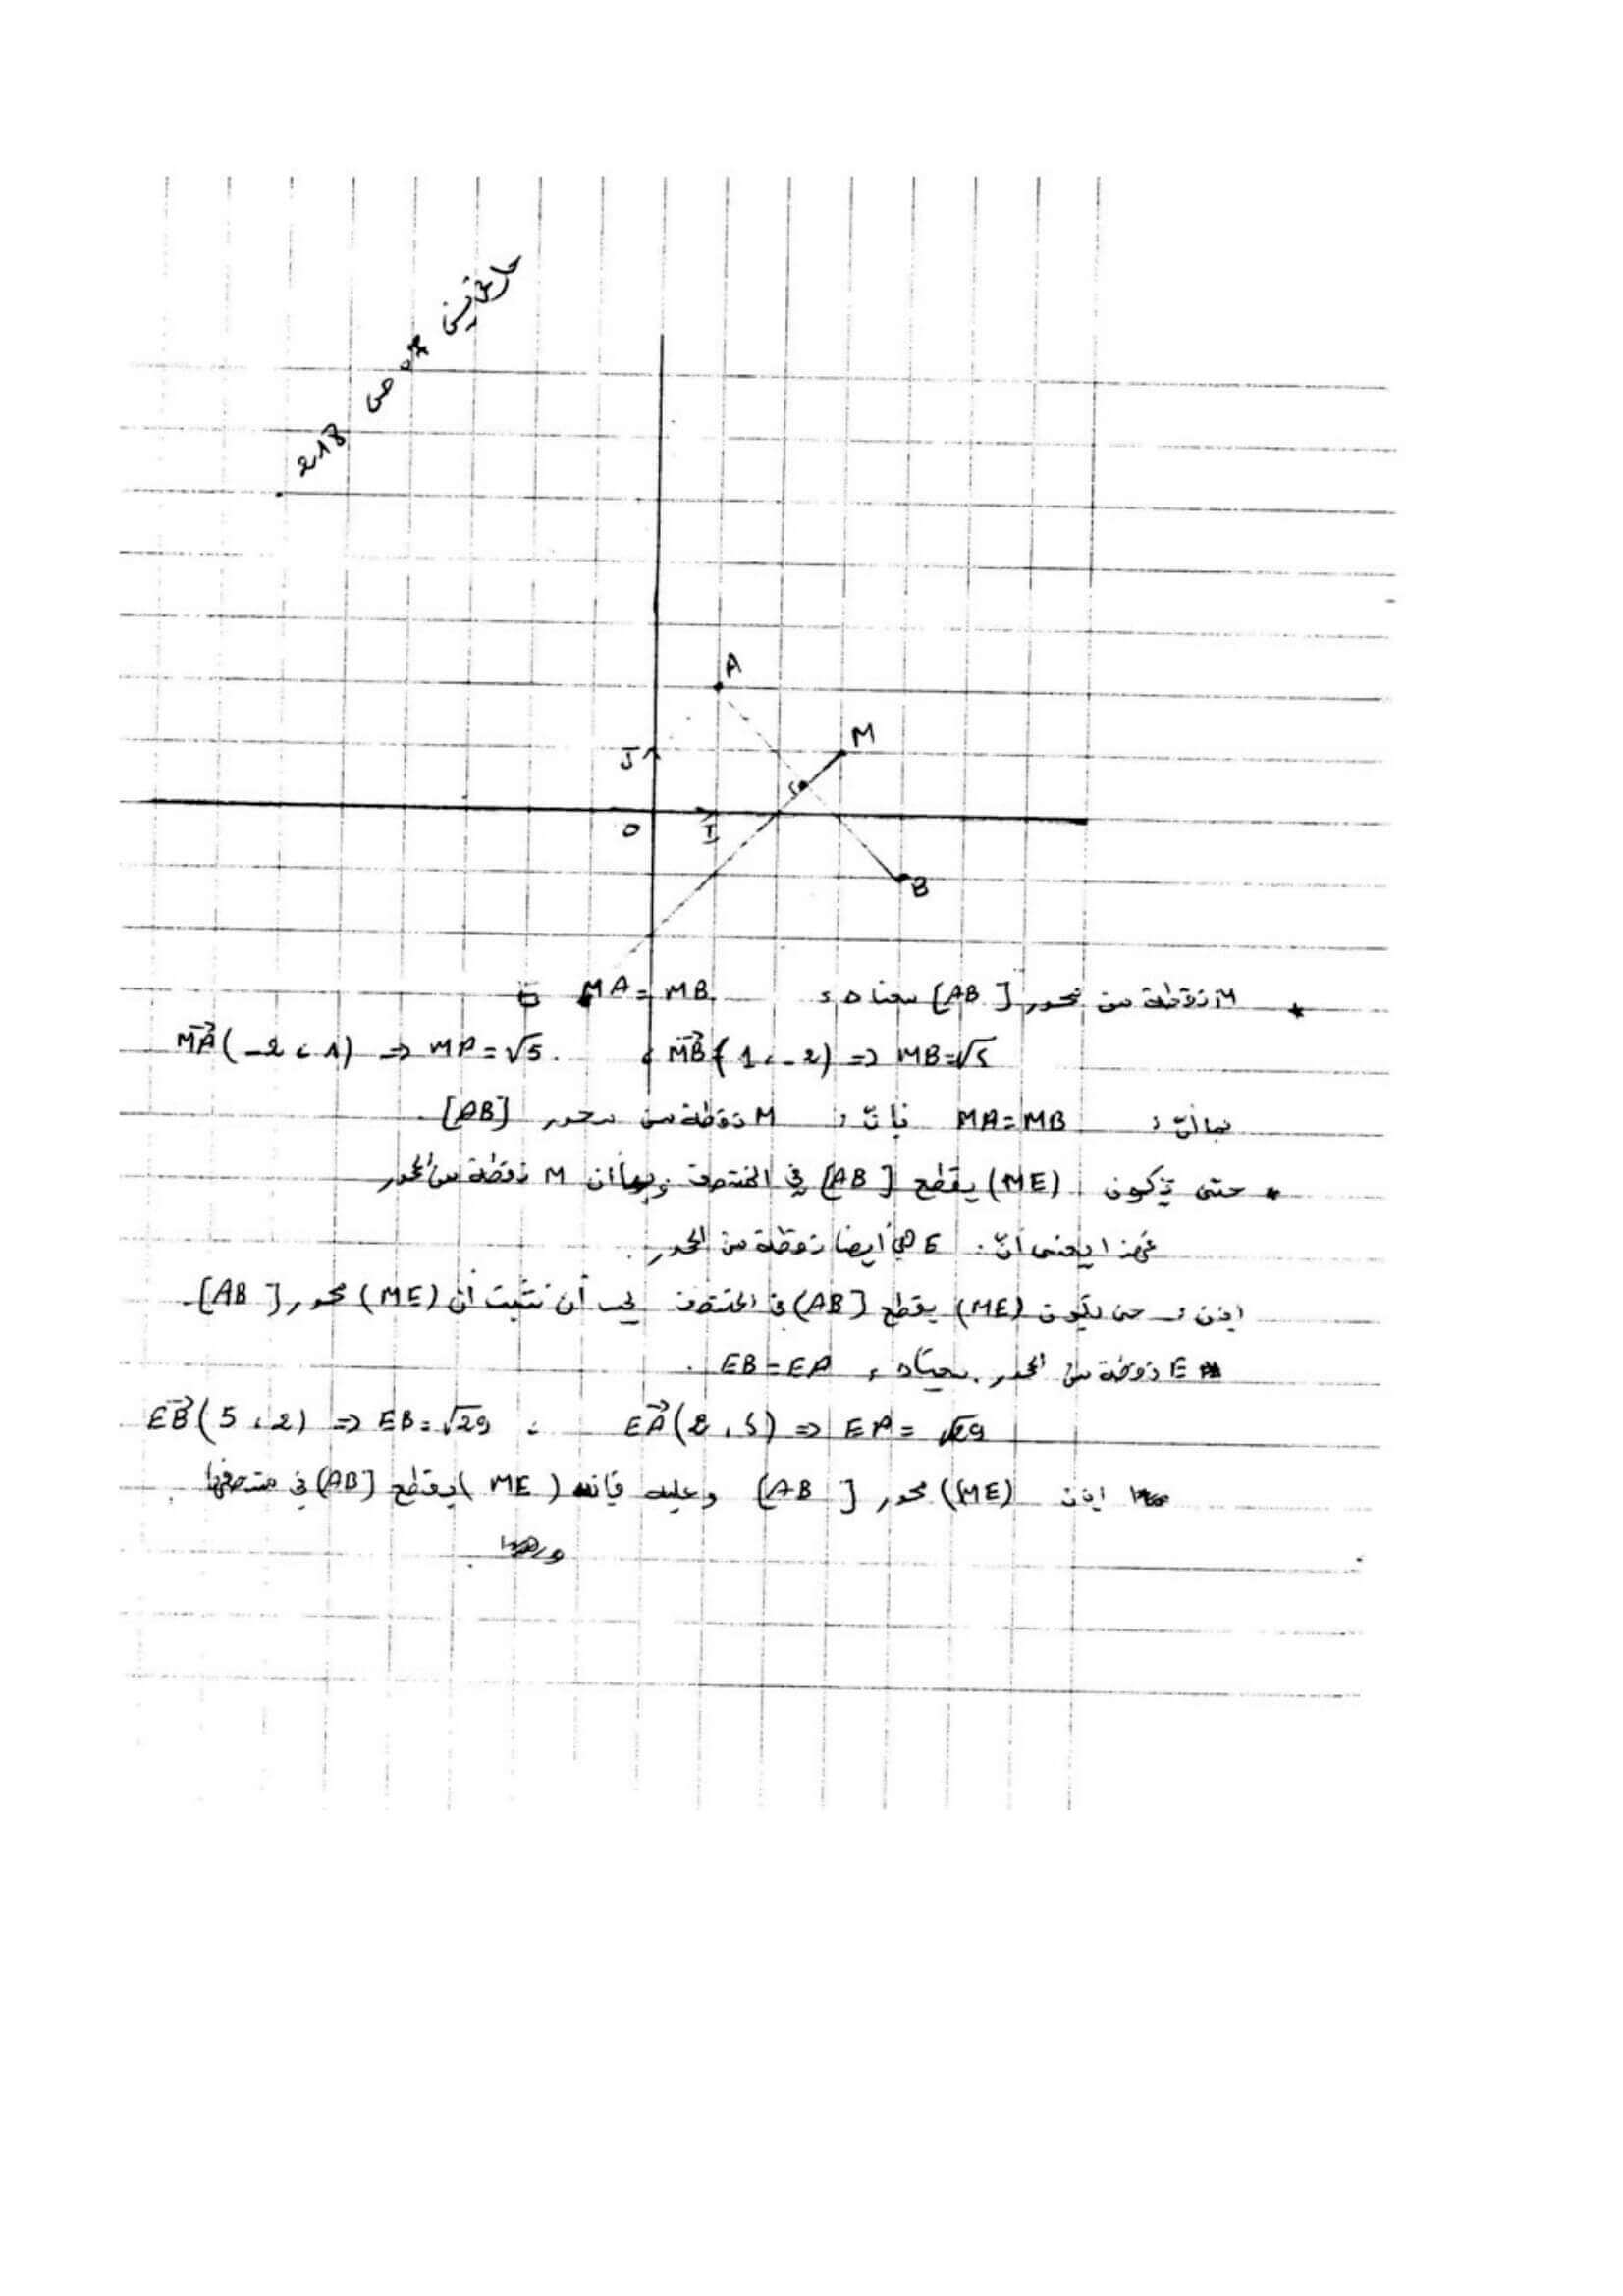 حل تمرين 07 ص 218
A
M
J
O
I
B
* M نقطة من محور [AB] معناه: MA = MB
MA(-2, 1) => MA = √5. , MB(1, -2) => MB = √5
بما أنّ: MA = MB فإنّ: M نقطة من محور [AB].
* حتى يكون (ME) يقطع [AB] في المنتصف وبما أن M نقطة من المحور
فهذا يعني أنّ: E هي أيضا نقطة من المحور.
إذن: حتى يكون (ME) يقطع [AB] في المنتصف يجب أن نثبت أن (ME) محور [AB].
E نقطة من المحور. معناه: EB = EA.
EB(5, 2) => EB = √29 , EA(2, 5) => EA = √29
إذن (ME) محور [AB] وعليه فإنه (ME) يقطع [AB] في منتصفها.